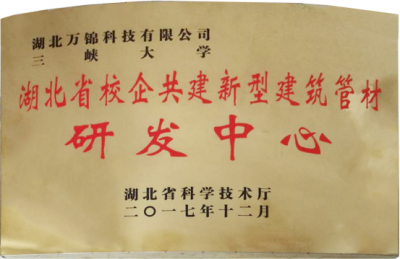 湖北万锦科技有限公司
三峡大学
湖北省校企共建新型建筑管材
研发中心
湖北省科学技术厅
二〇一七年十二月